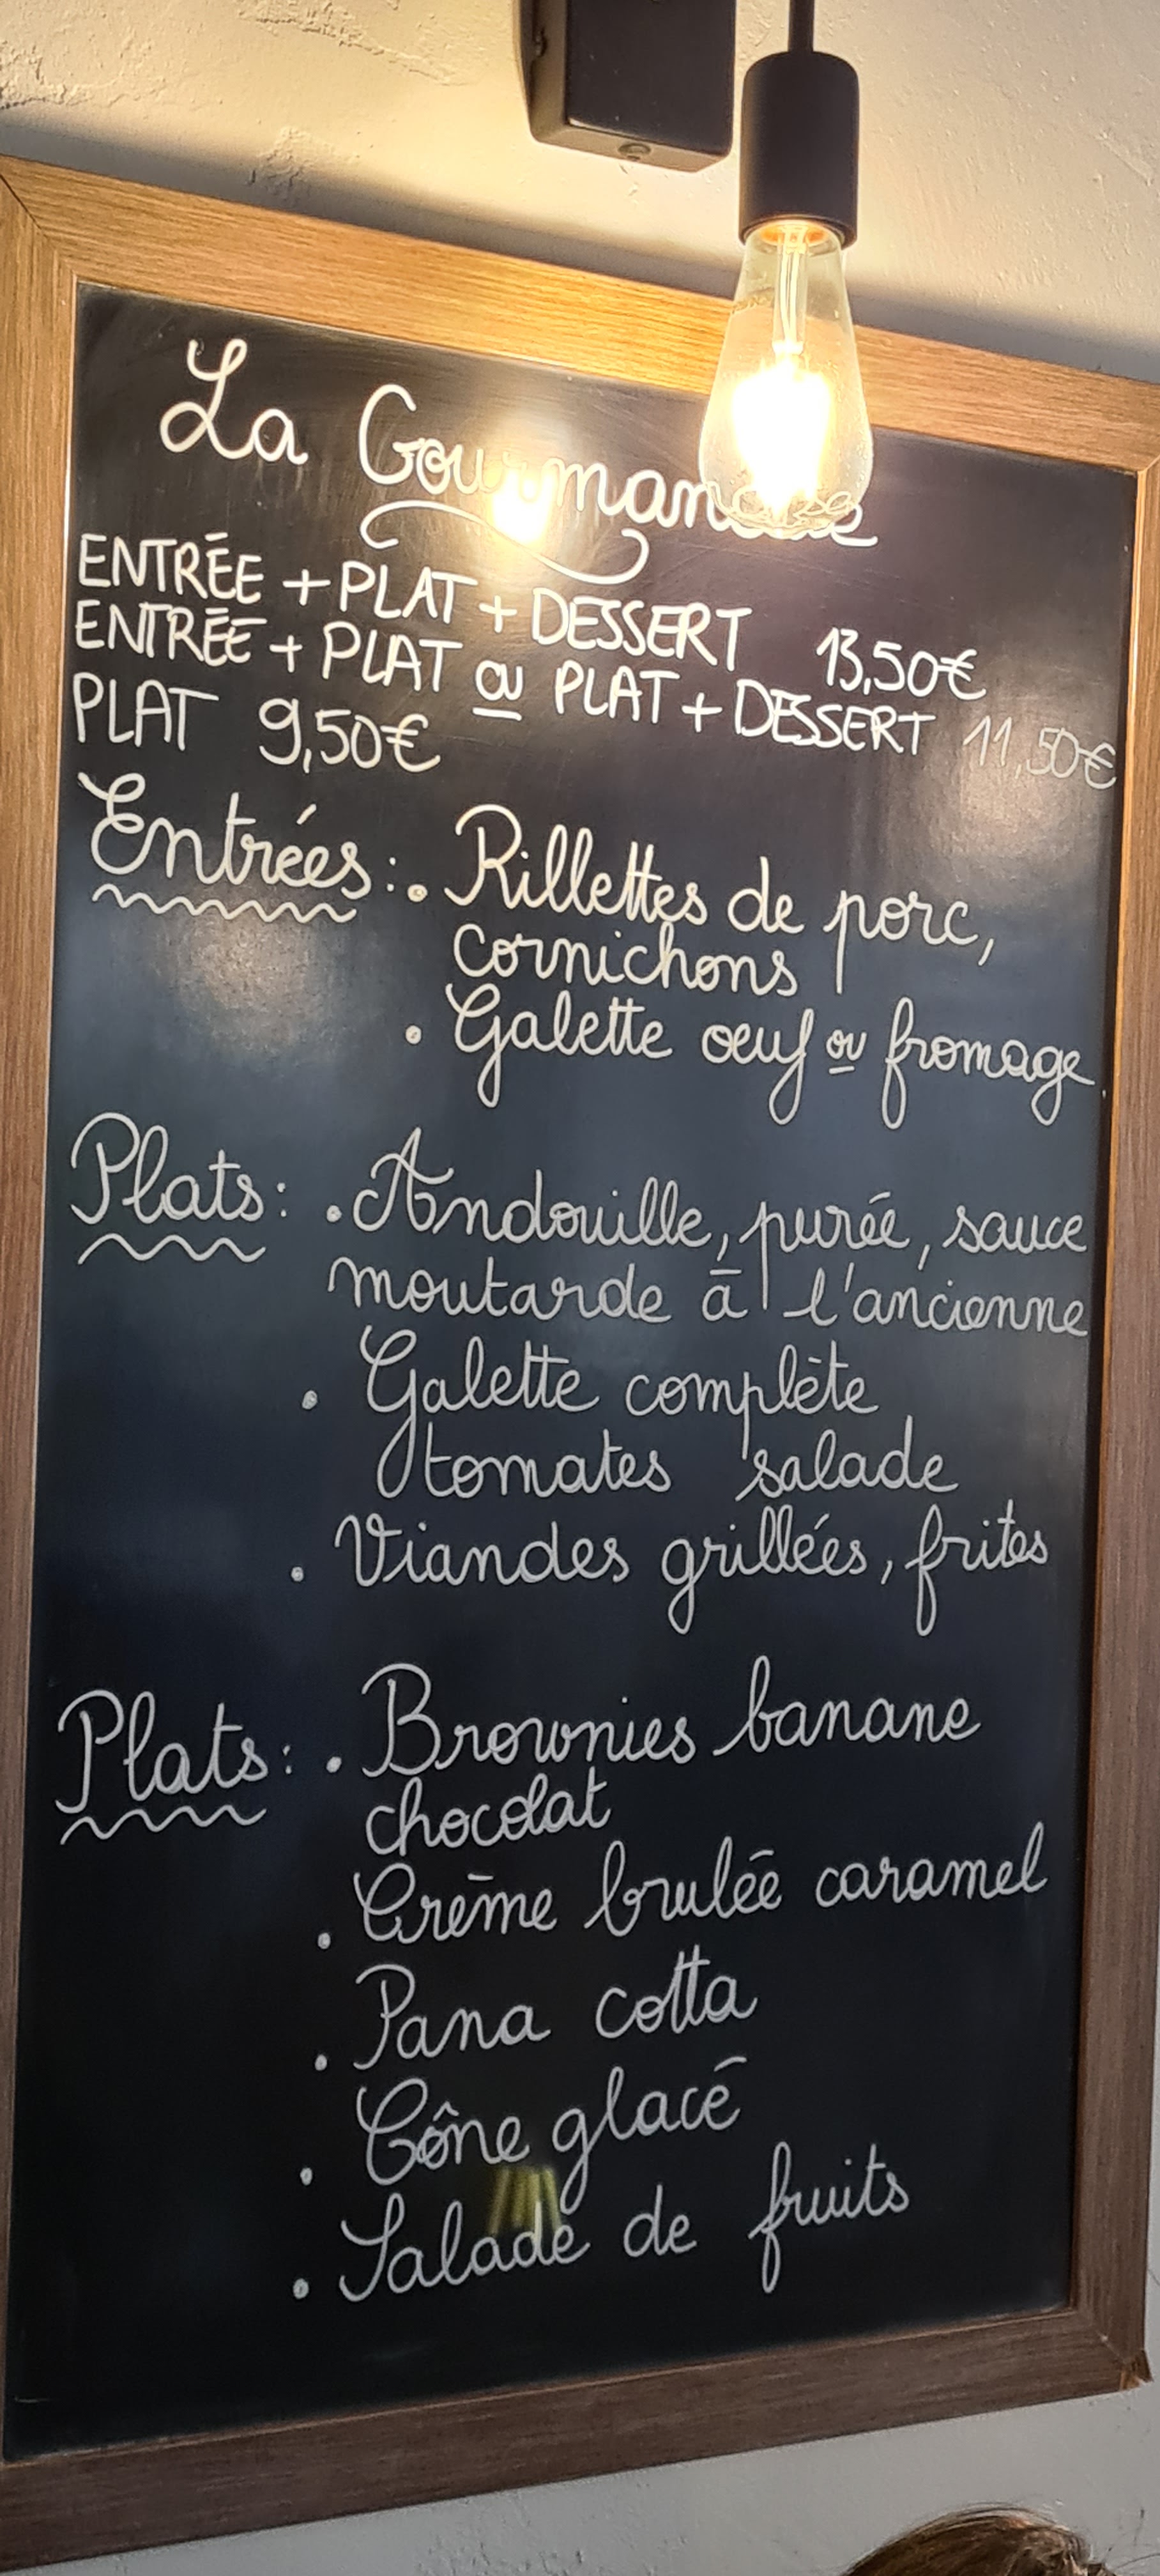 La Gourmandise
ENTRÉE + PLAT + DESSERT 13,50€
ENTRÉE + PLAT ou PLAT + DESSERT 11,50€
PLAT 9,50€
Entrées : . Rillettes de porc,
cornichons
. Galette oeuf ou fromage
Plats : . Andouille, purée, sauce
moutarde à l'ancienne
. Galette complète
tomates salade
. Viandes grillées, frites
Plats : . Brownies banane
chocolat
. Crème brulée caramel
. Pana cotta
. Cône glacé
. Salade de fruits